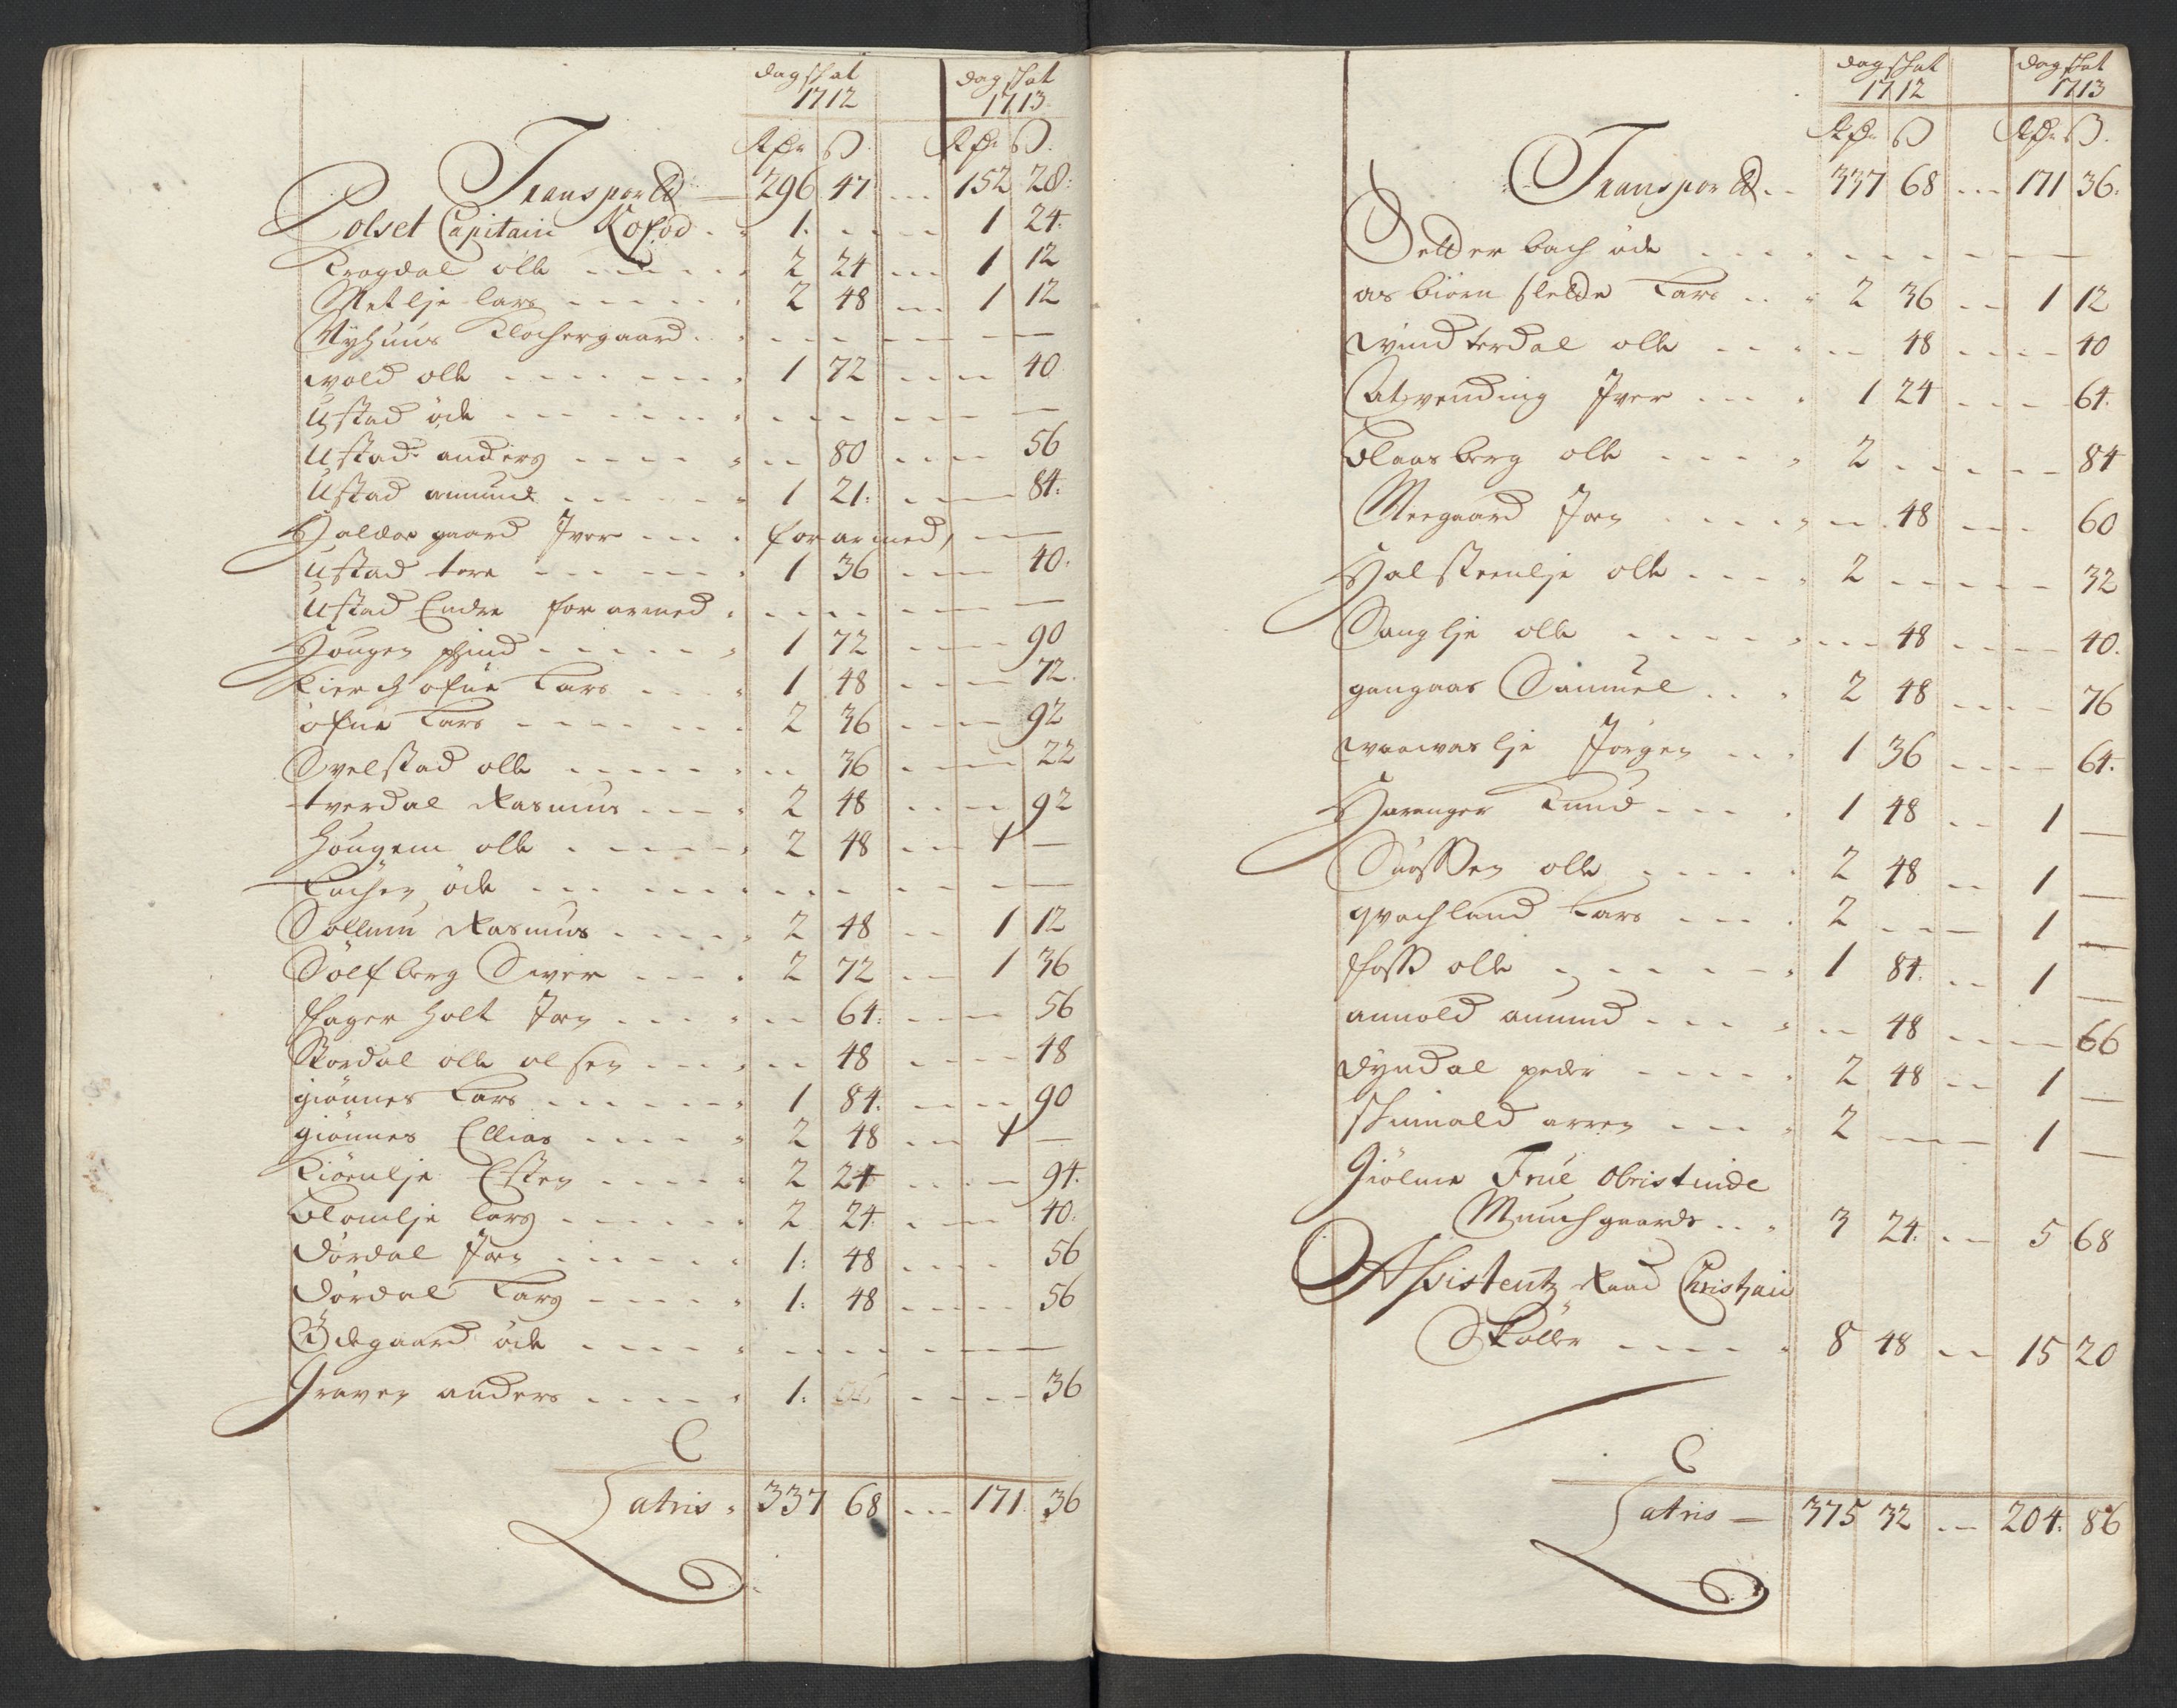 dagskat 1712 dagskat 1713
Rdr ß Rdr ß
Transport 296 47 152 28
Polset Capitain Kofod 1 1 24
Krogdal olle 2 24 1 12
Metlje Lars 2 48 1 12
Nyhuus Klochergaard
wold olle 1 72 40
Ustad öde
Ustad anders 80 56
Ustad amund 1 21 84
Haldor gaard Iver forarmed
Ustad tore 1 36 40
Ustad Endre forarmed
Hougen 1 72 90
Kierchofne Lars 1 48 72
öfne Lars 2 36 92
Svelstad olle 36 22
tverdal Rasmus 2 48 92
Hougem olle 2 48 1
Kachen öde
Sollum Rasmus 2 48 1 12
Solfberg Siver 2 72 1 36
Fagerholt Jon 64 56
Skordal olle olsen 48 48
giönnes Lars 1 84 90
giönnes Ellias 2 48 1
Kiörnlje Esten 2 24 94
blomlje Lars 2 24 40
Dördal Jon 1 48 56
Dördal Lars 1 48 56
Ödegaard öde
Graven anders 1 36
Latris 337 68 171 36
dagskat 1712 dagskat 1713
Rdr ß Rdr ß
Transport 337 68 171 36
Setterbach öde
asbiörnslette Lars 2 36 1 12
windterdal olle 48 40
Aatvending Iver 1 24 64
blaasberg olle 2 84
Meegaard Jon 48 60
Halsteenlje olle 2 32
Sanglje olle 48 40
gangaas Samuel 2 48 76
waawaslje Jörgen 1 36 64
Harenger Knud 1 48 1
Snossen olle 2 48 1
qvachland Lars 2 1
foss olle 1 84 1
annold amund 48 66
Dyndal peder 2 48 1
skinnald arren 2 1
Giölme Frue Obristinde
Munchgaards 3 24 5 68
Assistentz Raad Christian
Skøller 8 48 15 20
Latris 375 32 204 86